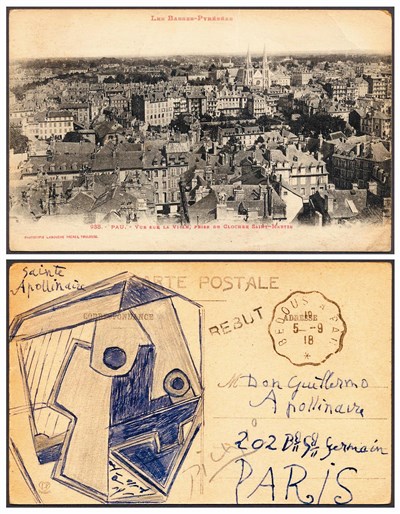 LES BASSES-PYRÉNÉES
PAU. - VUE SUR LA VILLE, PRISE DU CLOCHER SAINT-MARTIN
Sainte
Apollinaire
CARTE POSTALE
CORRESPONDANCE
ADRESSE
REBUT
5-9
18
M Don Guillermo
Apollinaire
202 Bd St Germain
PARIS
Picasso